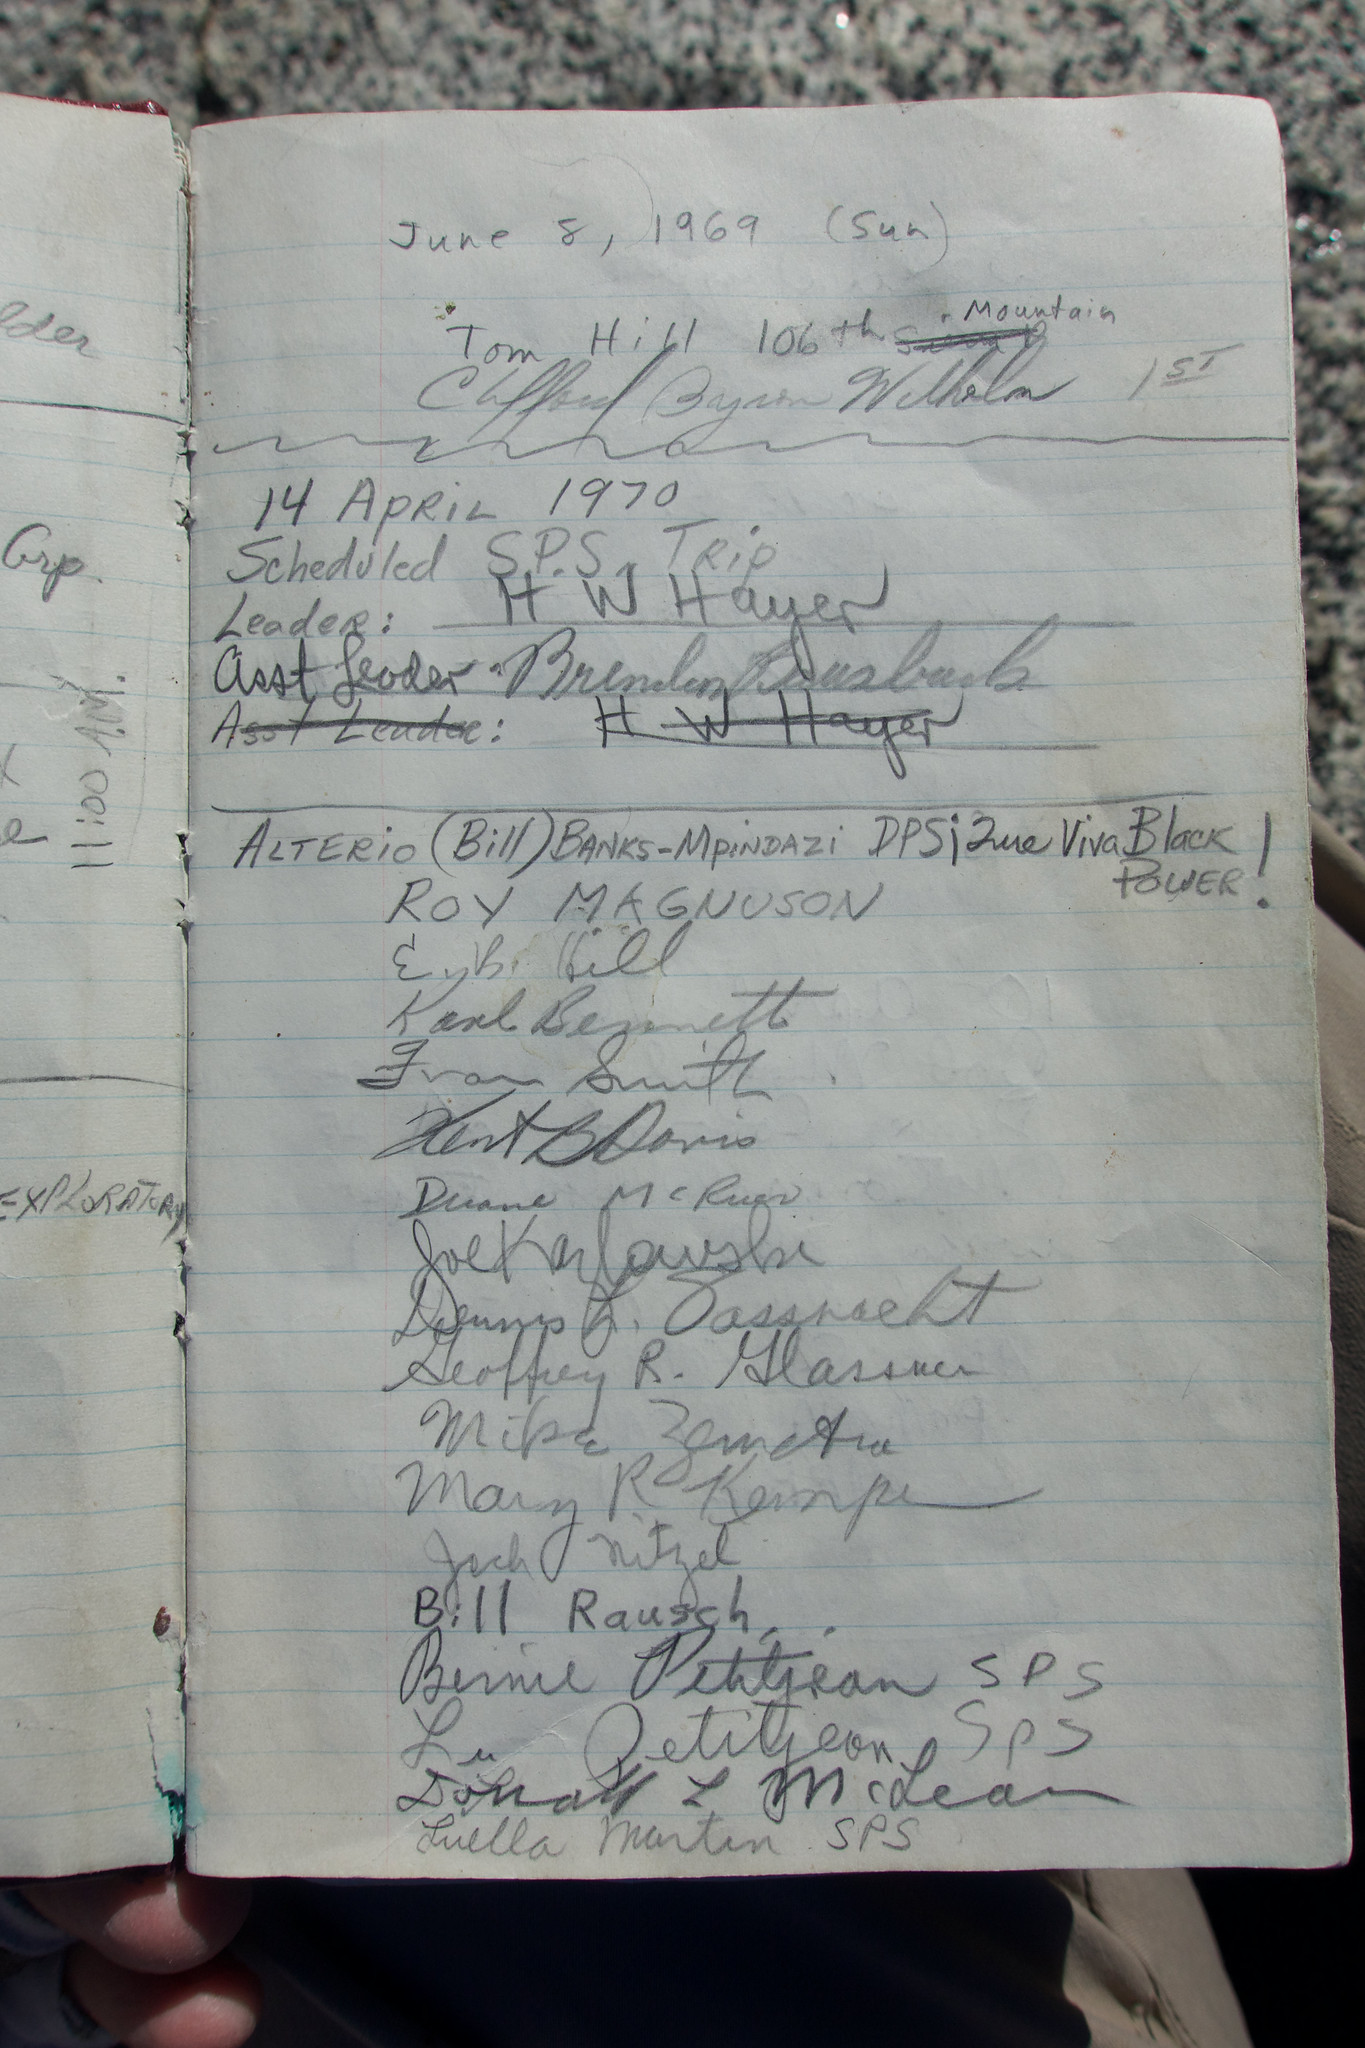 lder
Grp.
11:00 A.M.
EXPLORATORY
June 8, 1969 (Sun)
Mountain
Tom Hill 106th
Clifford Byron Wilhelm 1ST
14 APRIL 1970
Scheduled S.P.S. TRIP
Leader: H W Hayer
Asst Leader: Brenden
Asst Leader: H W Hayer
ALTERIO (Bill) BANKS-MPINDAZI DPS ¡Que Viva Black
POWER!
ROY MAGNUSON
Hill
Karl Bennett
Fran Smith
Kent B Davis
Duane McRuer
Joe
Dennis L.
Geoffrey R. Glassner
Mike
Mary R Kempe
Nitzel
Bill Rausch
Bernie Petitjean SPS
Lu Petitjean SPS
Donald L McLean
Luella Martin SPS